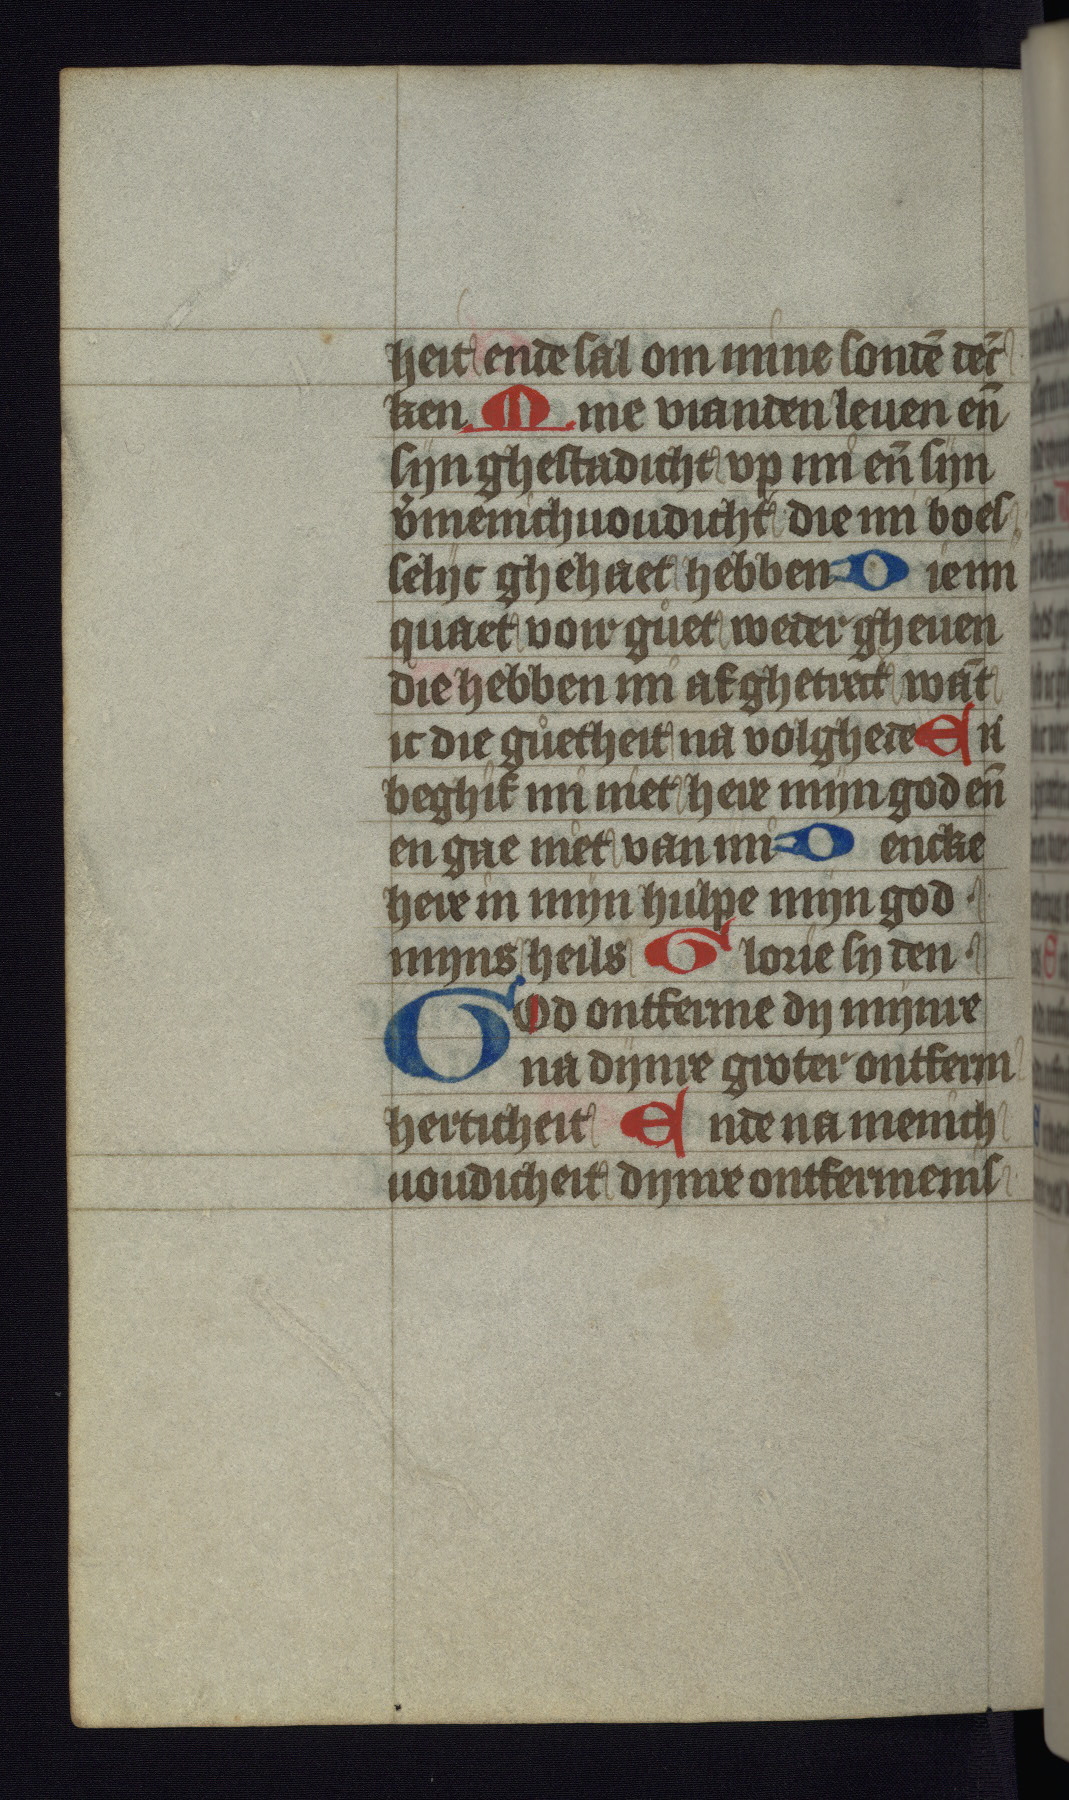 heit ende sal om mine sondē dec̄
ken Mine vianden leuen en̄
sijn ghestadicht vp mi en̄ sijn
v̓menichuoudicht die mi boes
selijc ghehaet hebben Die mi
quaet voir gůet weder gheuen
die hebben mi afghetreckt wāt
ic die gůetheit na volghede En
beghif mi niet here mijn god en̄
en gae niet van mi Dencke
here in mijn hulpe mijn god
mijns heils Glorie sy den
God ontferme dij mijnre
na dijnre groter ontferm
herticheit Ende na menich
uoudicheit dijnre ontfermenis